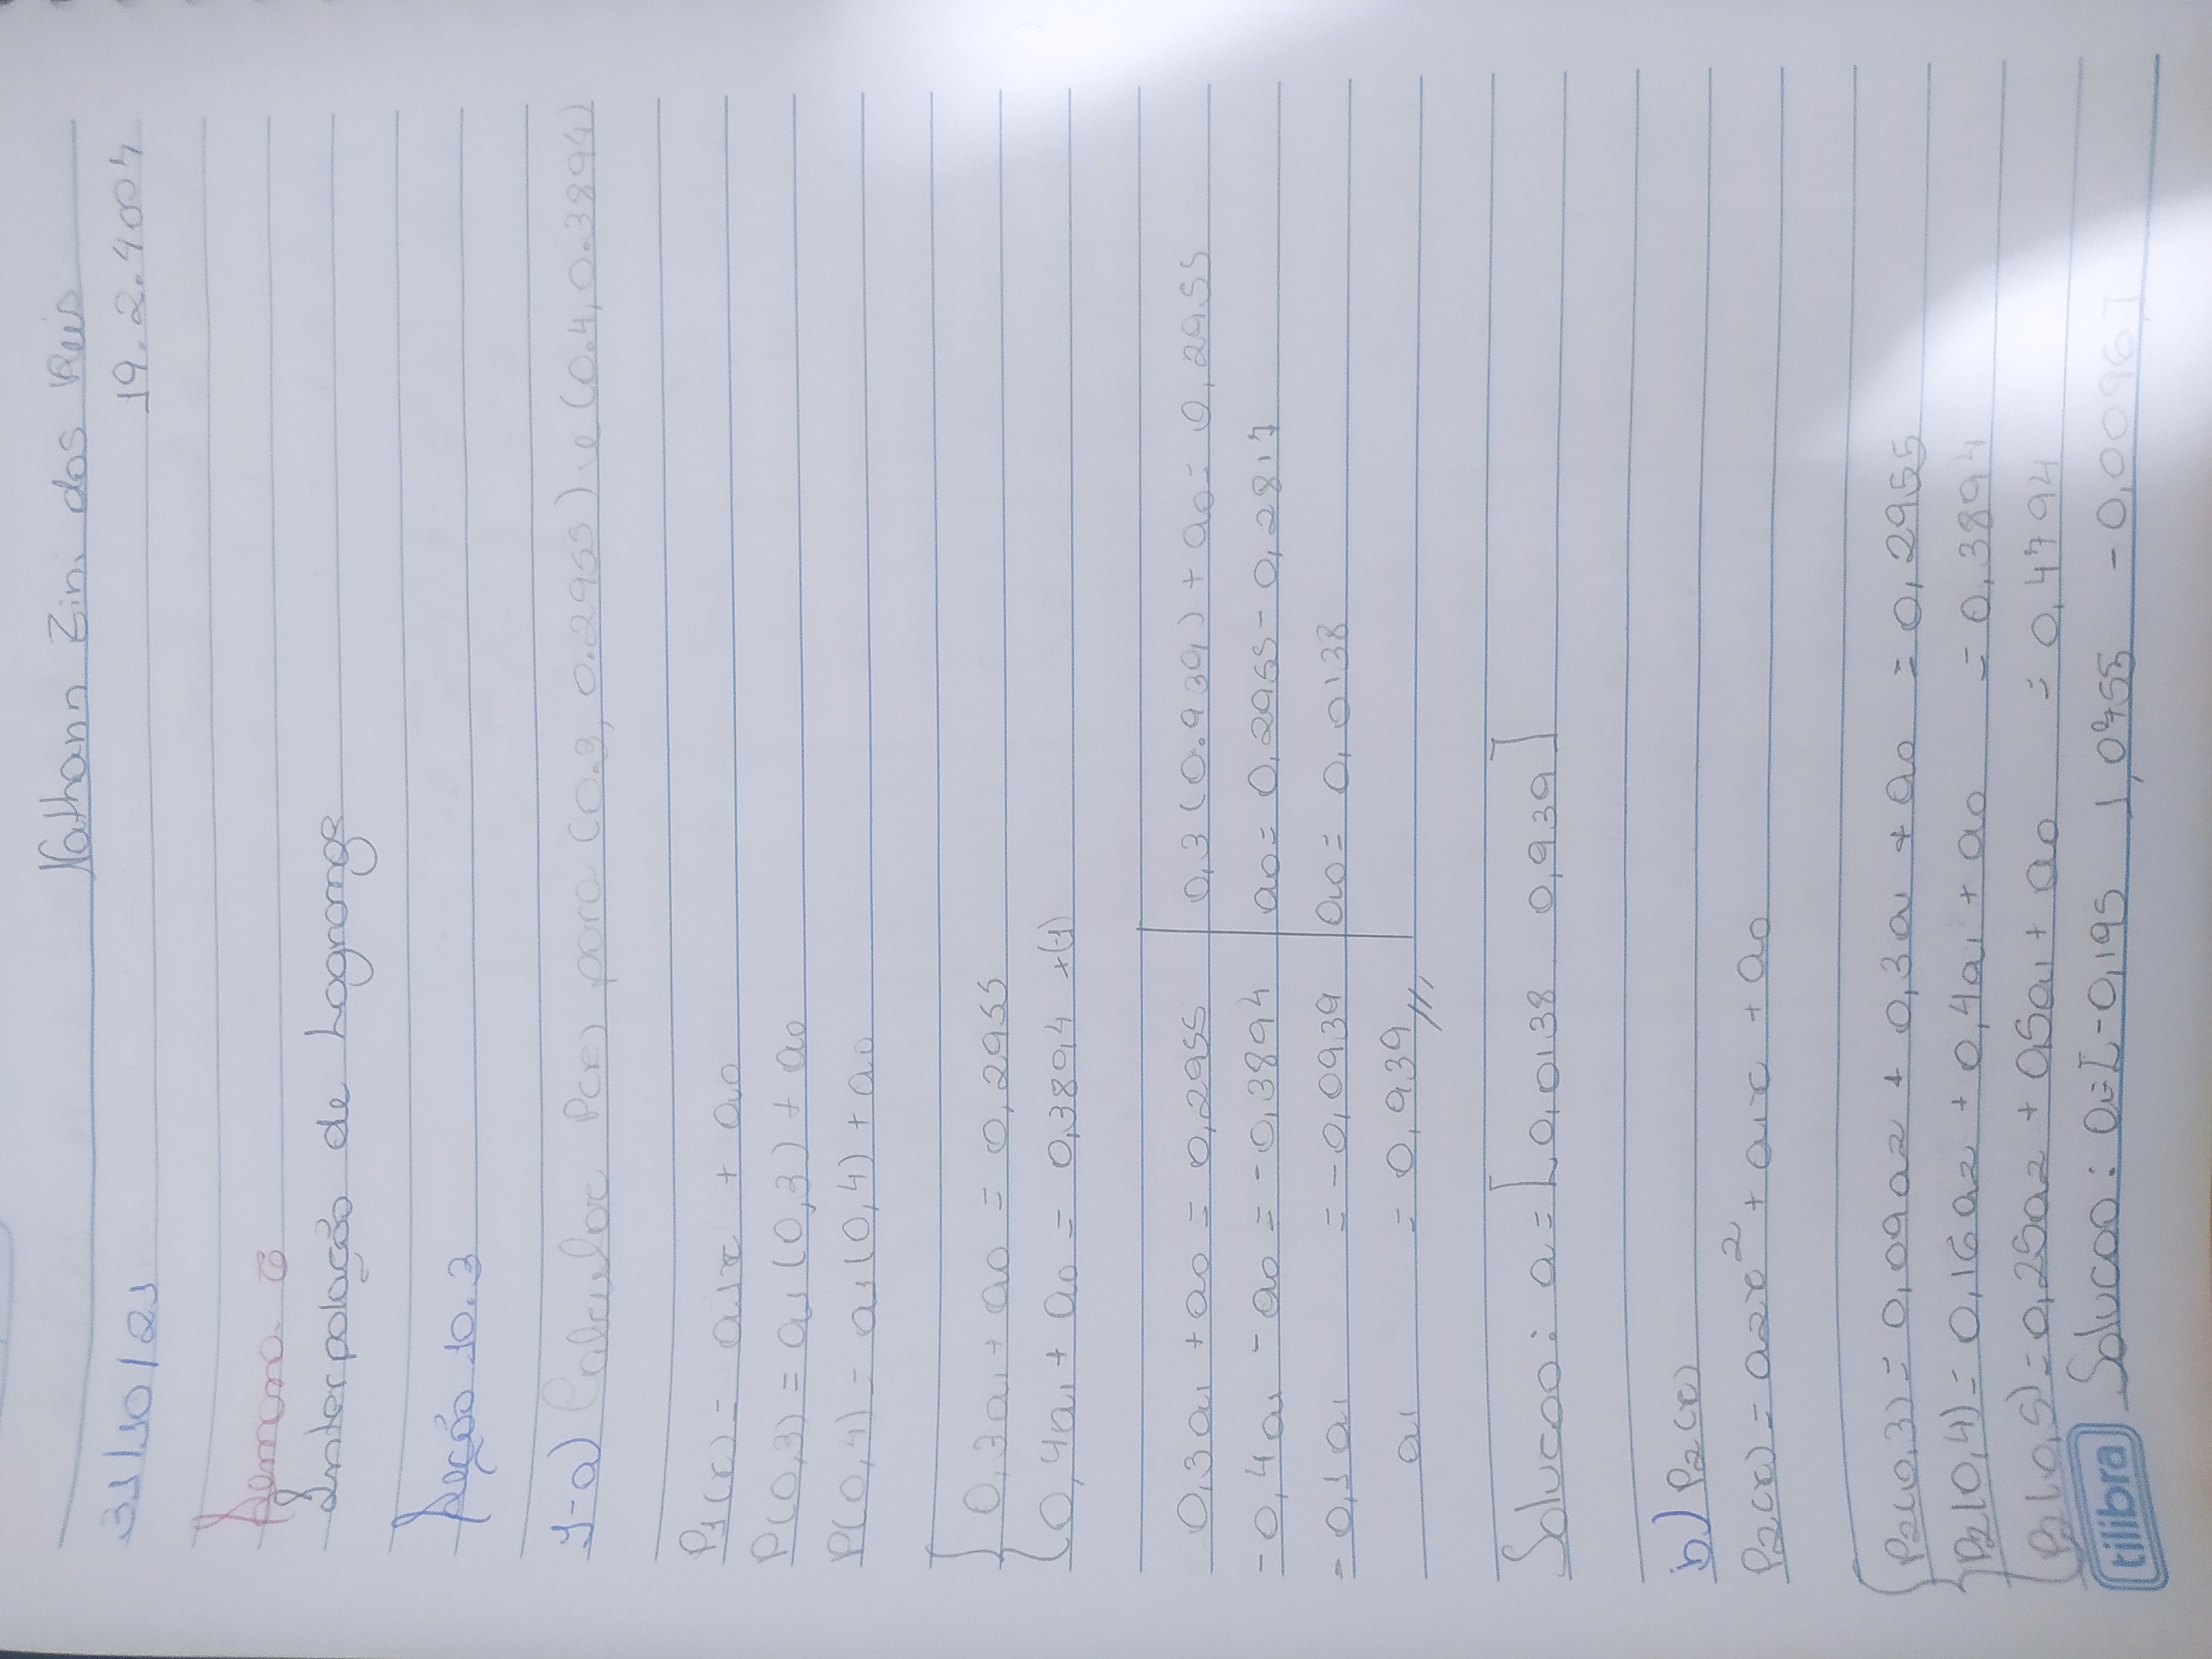 Nathann Zini dos Reis
31/10/21 19.2.4004
Semana 6
Interpolação de Lagrange
Seção 10.3
1-a) Calcular P(x) para (0.3, 0.2955) e (0.4, 0.3894)
P1(x) = a1x + a0
P(0,3) = a1(0,3) + a0
P(0,4) = a1(0,4) + a0
0,3a1 + a0 = 0,2955
0,4a1 + a0 = 0,3894 *(-1)
0,3a1 + a0 = 0,2955 0,3(0.939) + a0 = 0,2955
-0,4a1 - a0 = -0,3894 a0 = 0,2955 - 0,2817
-0,1a1 = -0,0939 a0 = 0,0138
a1 = 0,939
Solucao: a = [0,0138 0,939]
b) P2(x)
P2(x) = a2x² + a1x + a0
P2(0,3) = 0,09a2 + 0,3a1 + a0 = 0,2955
P2(0,4) = 0,16a2 + 0,4a1 + a0 = 0,3894
P2(0,5) = 0,25a2 + 0,5a1 + a0 = 0,4794
Solucao: a=[-0,195 1,0755 -0,0096]
tilibra